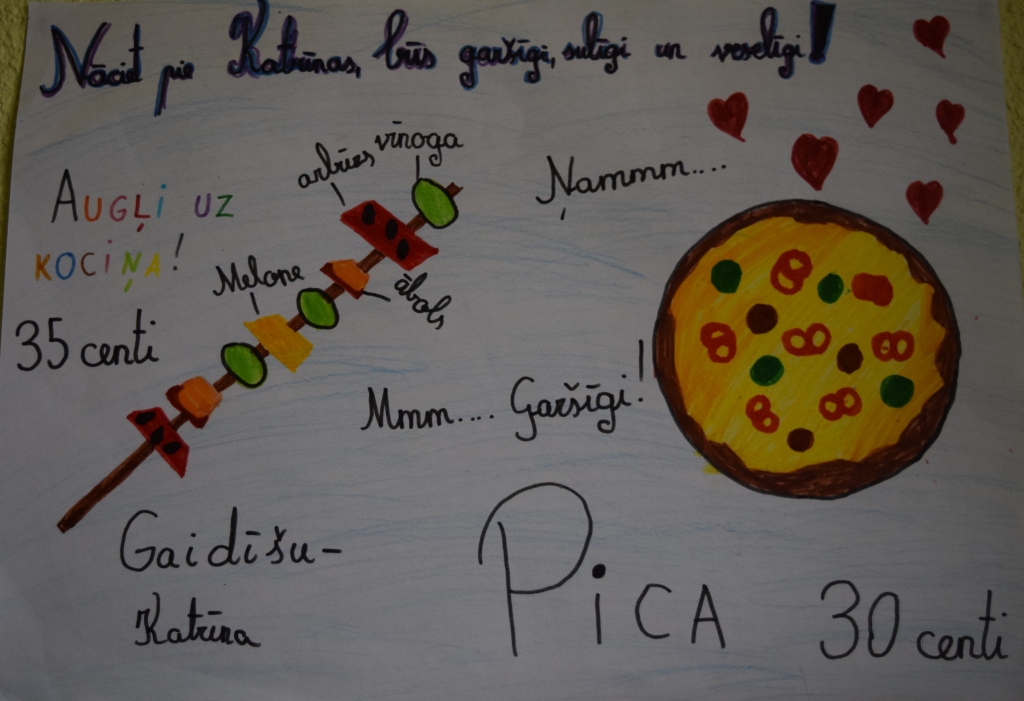 Nāciet pie Katrīnas, būs garšīgi, sulīgi un veselīgi!
arbūzs
vīnoga
Augļi uz
kociņa!
Melone
ābols
35 centi
Ņammm....
Mmm.... Garšīgi!
Gaidīšu-
Katrīna
Pica
30 centi